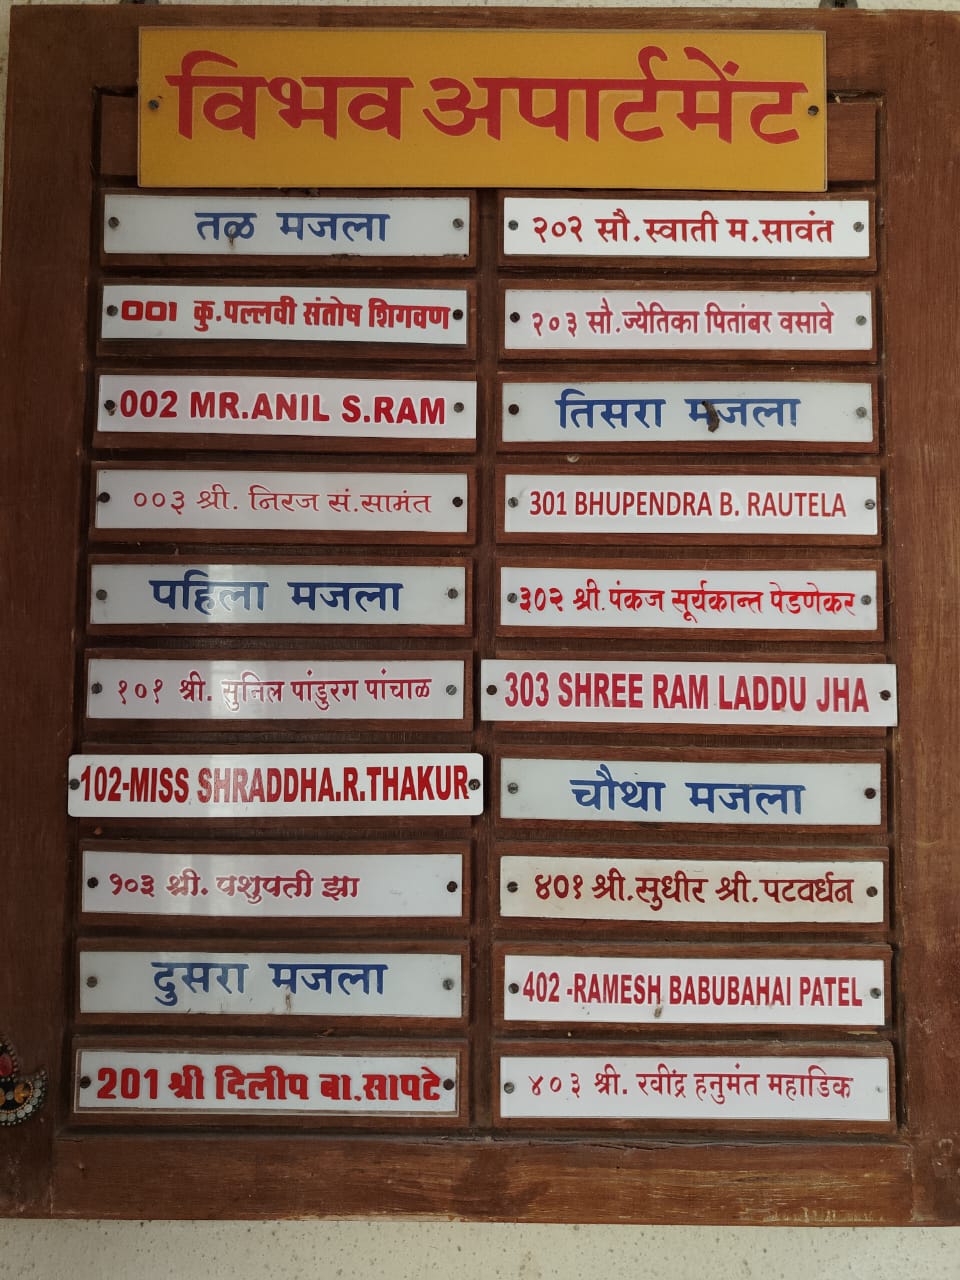 विभव अपार्टमेंट
तळ मजला
001 कु.पल्लवी संतोष शिगवण
002 MR.ANIL S.RAM
००३ श्री. निरज सं.सामंत
पहिला मजला
१०१ श्री. सुनिल पांडुरग पांचाळ
102-MISS SHRADDHA.R.THAKUR
१०३ श्री. पशुपती झा
दुसरा मजला
201 श्री दिलीप बा.सापटे
२०२ सौ.स्वाती म.सावंत
२०३ सौ.ज्येतिका पितांबर वसावे
तिसरा मजला
301 BHUPENDRA B. RAUTELA
३०२ श्री.पंकज सूर्यकान्त पेडणेकर
303 SHREE RAM LADDU JHA
चौथा मजला
४०१ श्री.सुधीर श्री.पटवर्धन
402 -RAMESH BABUBAHAI PATEL
४०३ श्री. रवींद्र हनुमंत महाडिक